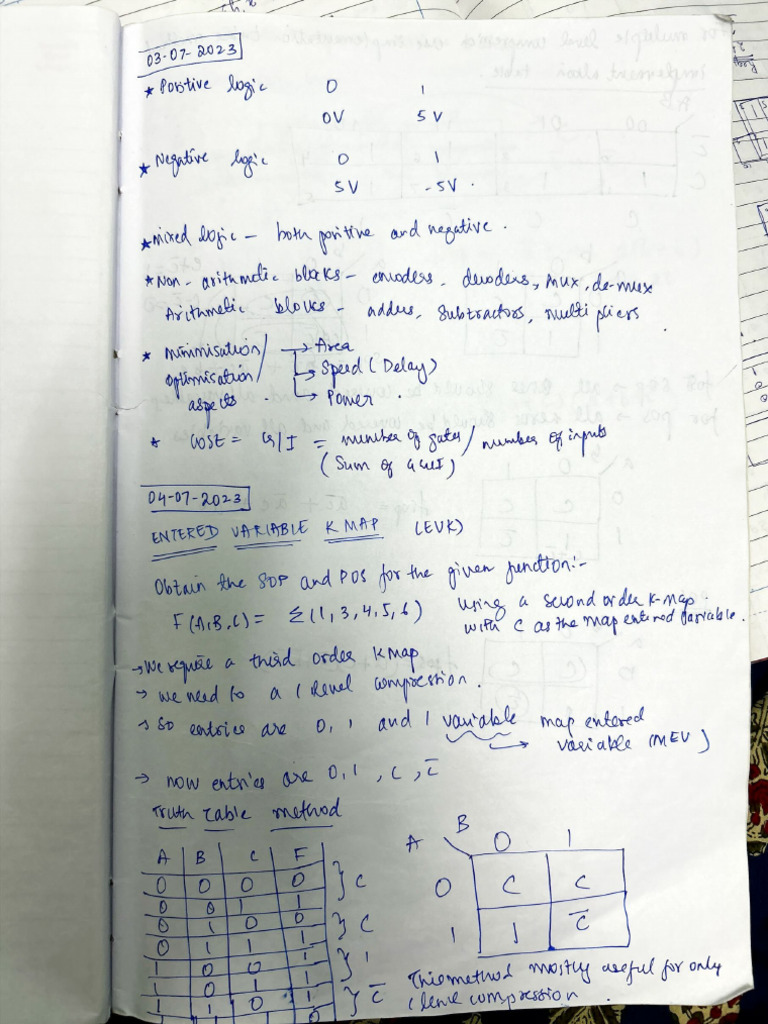 03-07-2023
* Positive logic 0 1
0V 5V
* Negative logic 0 1
5V -5V.
* mixed logic - both positive and negative.
* Non-arithmetic blocks - encoders, decoders, mux, de-mux
Arithmetic blocks - adders, subtractors, multipliers
* minimisation/ → Area
optimisation/ → Speed (Delay)
aspects → Power.
* cost = G/I = number of gates / number of inputs
(Sum of G and I)
04-07-2023
ENTERED VARIABLE K MAP (EVK)
Obtain the SOP and POS for the given function:-
F(A,B,C) = Σ(1,3,4,5,6) using a second order K-map
with C as the map entered variable.
→ We require a third order K map
→ we need to a 1 level compression.
→ so entries are 0, 1 and 1 variable map entered
→ variable (MEV)
→ now entries are 0, 1, C, C̅
Truth Table method
A B C F
0 0 0 0 } C
0 0 1 1
0 1 0 0 } C
0 1 1 1
1 0 0 1 } 1
1 0 1 1
1 1 0 1 } C̅
A B 0 1
0 C C
1 1 C̅
This method mostly useful for only
1 level compression.